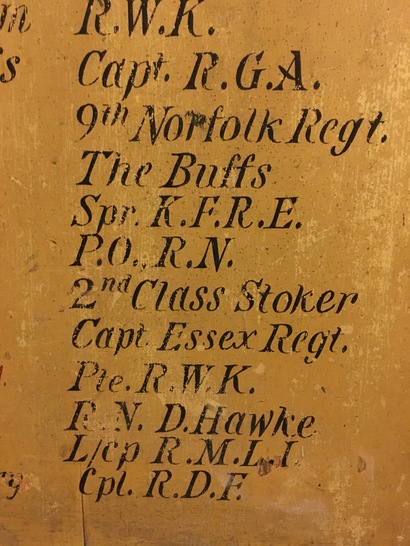 R.W.K.
Capt. R.G.A.
9th Norfolk Regt.
The Buffs
Spr. K.F.R.E.
P.O. R.N.
2nd Class Stoker
Capt. Essex Regt.
Pte. R.W.K.
R.N. D.Hawke
L/cp R.M.L.I.
Cpl. R.D.F.